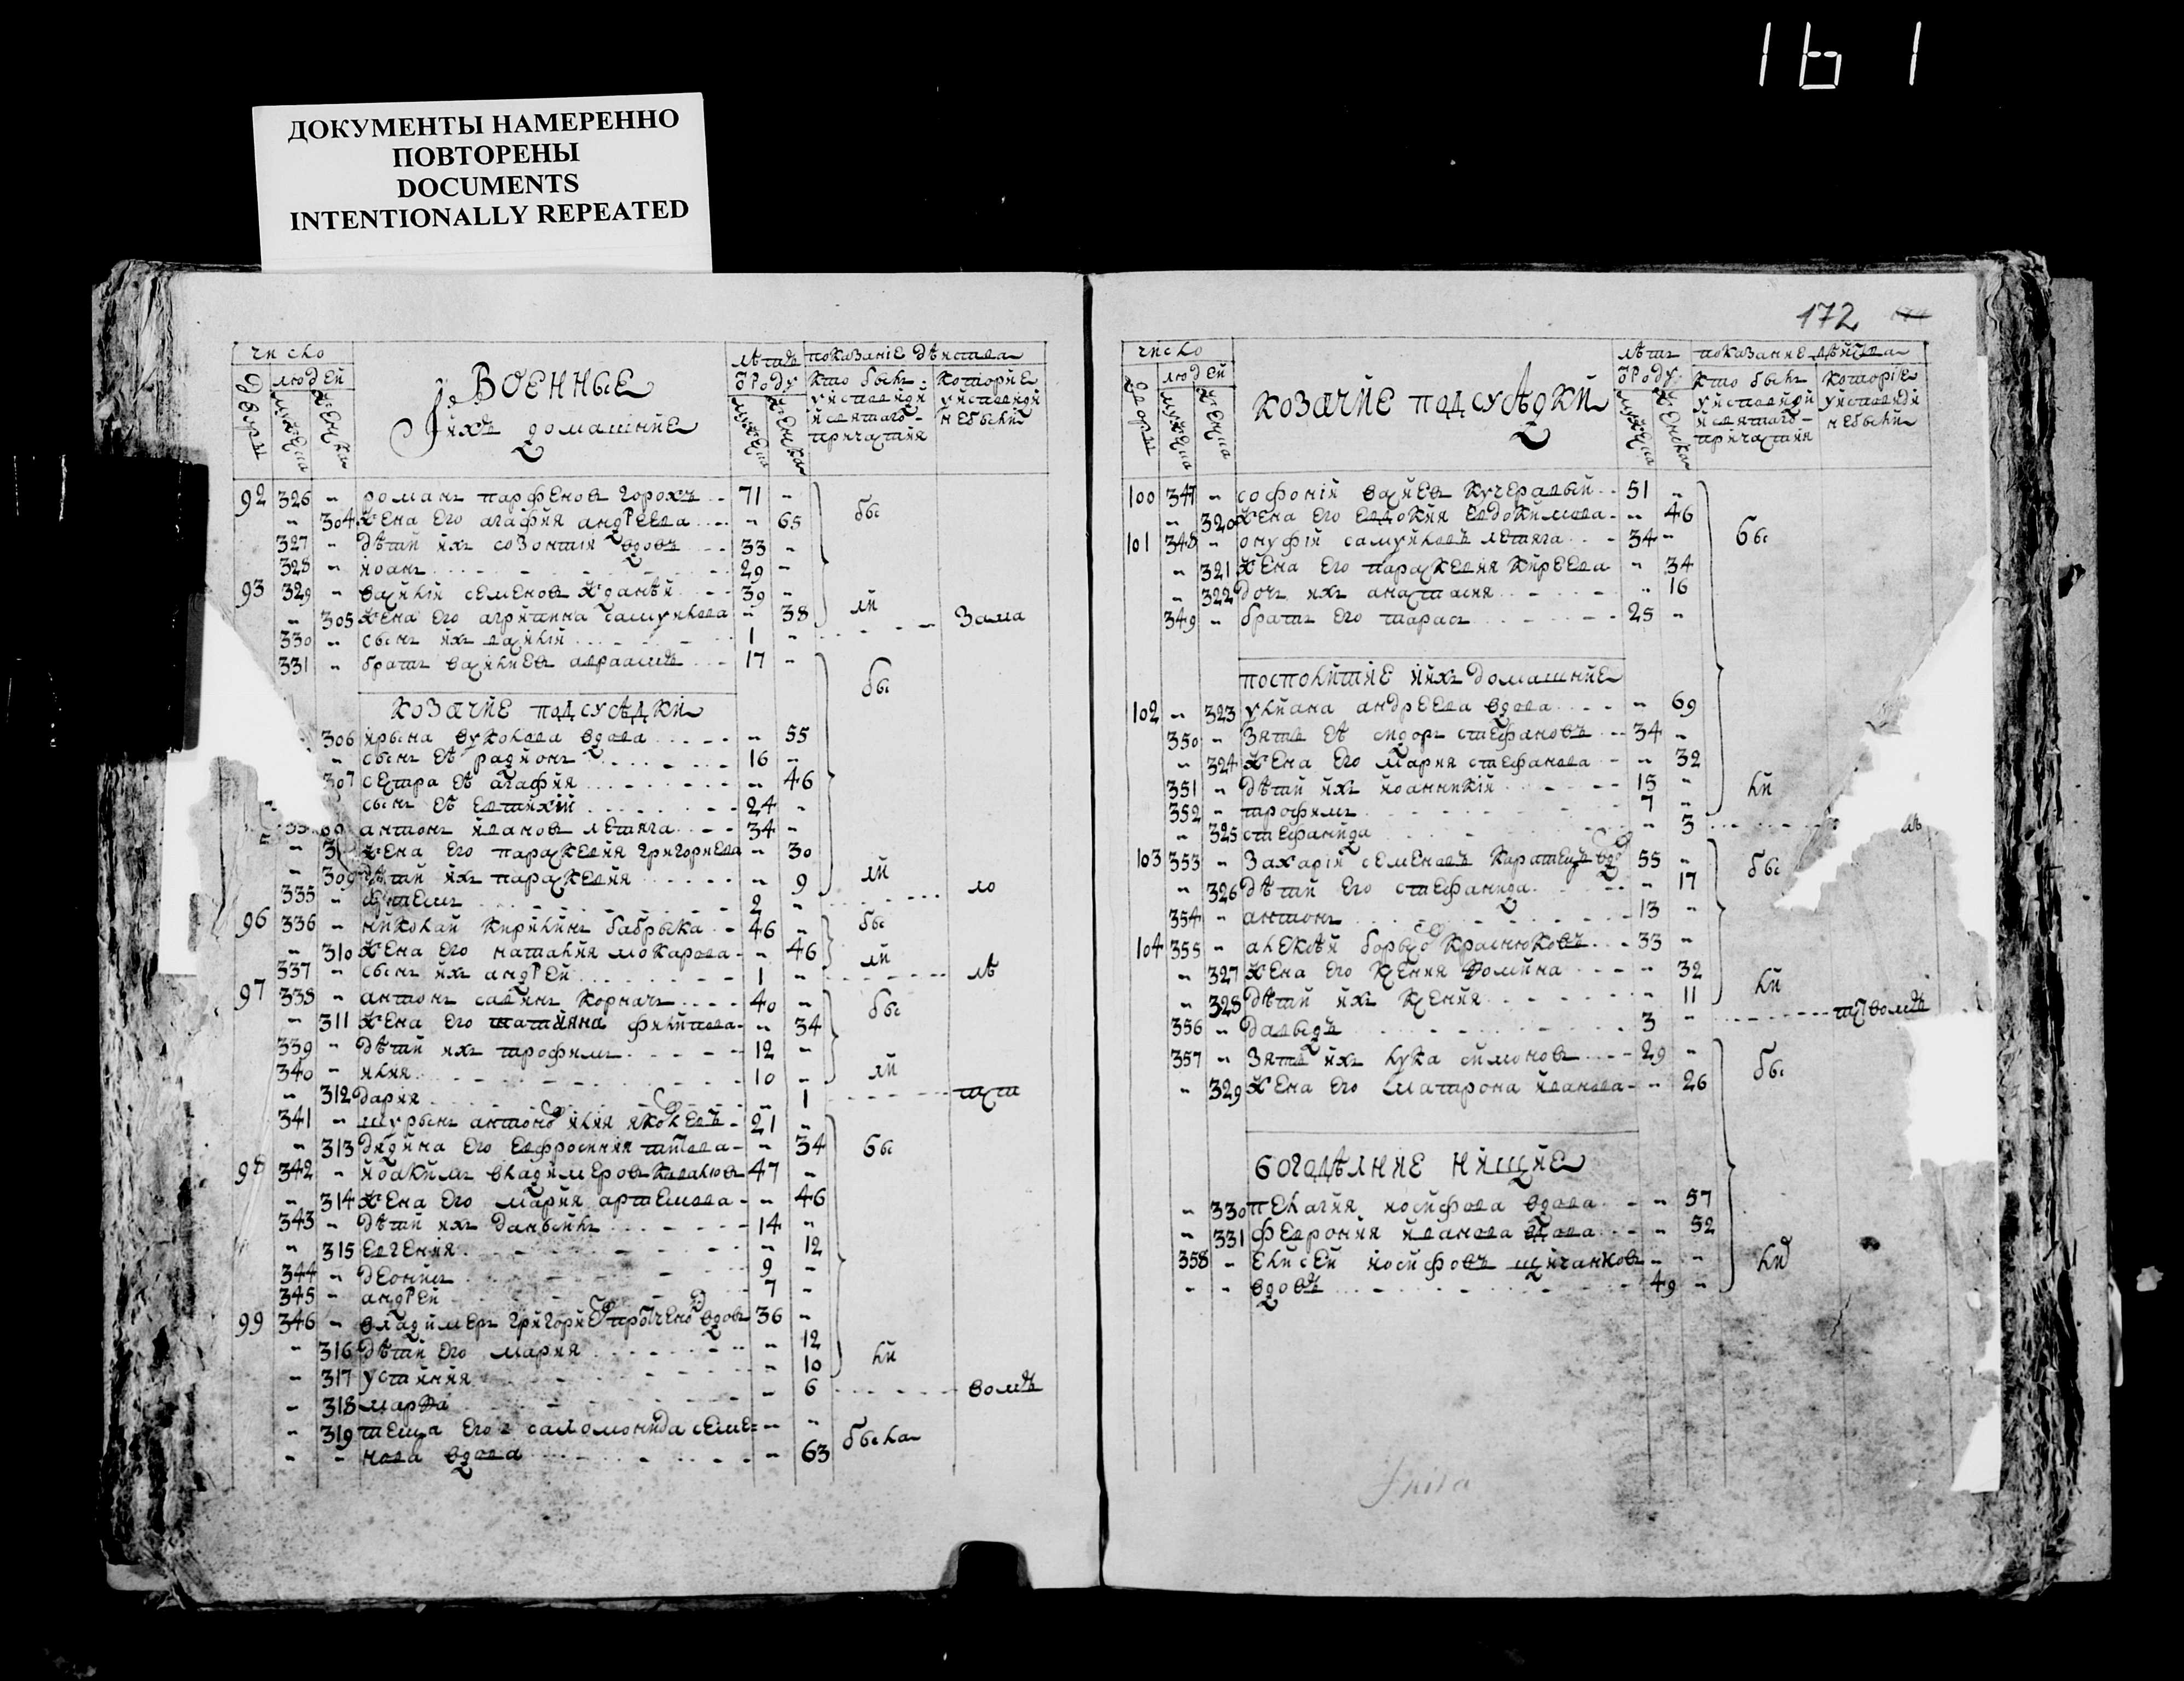 161
ДОКУМЕНТЫ НАМЕРЕННО
ПОВТОРЕНЫ
DOCUMENTS
INTENTIONALLY REPEATED
число
дворы
людей
мужеска
женска
Военные
и ихъ домашние
лѣтъ
ѿ роду
мужеска
женска
показание дѣйства
кто былъ у исповѣди и святаго причастия
которие у исповѣди не были
92 326 - романъ парфеновъ горохъ 71 - бы
- 304 жена его агафия андреева - 65
327 - дѣти ихъ созонтий вдовъ 33 -
328 - иоанъ 29 -
93 329 - василий семеновъ жданъй 39 - ли
- 305 жена его агрипина самуилова - 38
330 - сынъ ихъ василий 1 - зама
331 - братъ василиевъ авраамъ 17 - бы
козачие подсусѣдки
306 ирына луколова вдова - 55
- сынъ еѣ радионъ 16 -
307 сестра еѣ агафия - 46
сынъ еѣ евтихий 24 -
антонъ ивановъ летяга 34 -
жена его параскевия григориева - 30
- 309 дѣти ихъ параскевия - 9 ли
335 - 2 - ло
96 336 - николай кирилинъ бабрыка 46 - бы
- 310 жена его наталия мокарова - 46 ли
337 - сынъ ихъ андрей 1 - лѣ
97 338 - антонъ савинъ корначъ 40 - бы
- 311 жена его татияна филипова - 34
339 - дѣти ихъ трофимъ 12 -
340 - илия 10 - ли
- 312 дария - 1
341 - шурынъ антоновъ илия яковлевъ 21 -
- 313 дядина его евфросиния титова - 34 бы
98 342 - иоакимъ владимеровъ 47 -
- 314 жена его мария артемова - 46
343 - дѣти ихъ данылъ 14 -
- 315 евгения - 12
344 - деонисъ 9 -
345 - андрей 7 -
99 346 - владимеръ григориевъ вдовъ 36 -
- 316 дѣти его мария - 12
- 317 устиния - 10 ли
- 318 марфа - 6
- 319 теща его саломонида семе-
- - нова вдова - 63 была
172
число
дворы
людей
мужеска
женска
козачие подсусѣдки
лѣтъ
ѿ роду
мужеска
женска
показание дѣйства
кто былъ у исповѣди и святаго причастия
которие у исповѣди не были
100 347 - софоний василиевъ кучеравый 51 -
- 320 жена его евдокия евдокимова - 46
101 348 - онуфий самуиловъ летяга 34 - бы
- 321 жена его параскевия киреева - 34
- 322 дочь ихъ анастасия - 16
349 - братъ его тарасъ 25 -
посполитие и ихъ домашние
102 - 323 улиана андреева вдова - 69
350 - зять еѣ сидоръ стефановъ 34 -
- 324 жена его мария стефанова - 32
351 - дѣти ихъ иоанникий 15 - ли
352 - трофимъ 7 -
- 325 стефанида - 3
103 353 - захарий семеновъ вдовъ 55 - бы
- 326 дѣти его стефанида - 17
354 - антонъ 13 -
104 355 - алексѣй борысовъ краснюковъ 33 -
- 327 жена его ксения фомина - 32
- 328 дѣти ихъ ксения - 11 ли
356 - давыдъ 3 -
357 - зять ихъ лука симоновъ 29 - бы
- 329 жена его матрона иванова - 26
богадѣлние нищие
- 330 пелагия иосифова вдова - 57
- 331 феврония иванова вдова - 52
358 - елисей иосифовъ - -
- - вдовъ 49 -